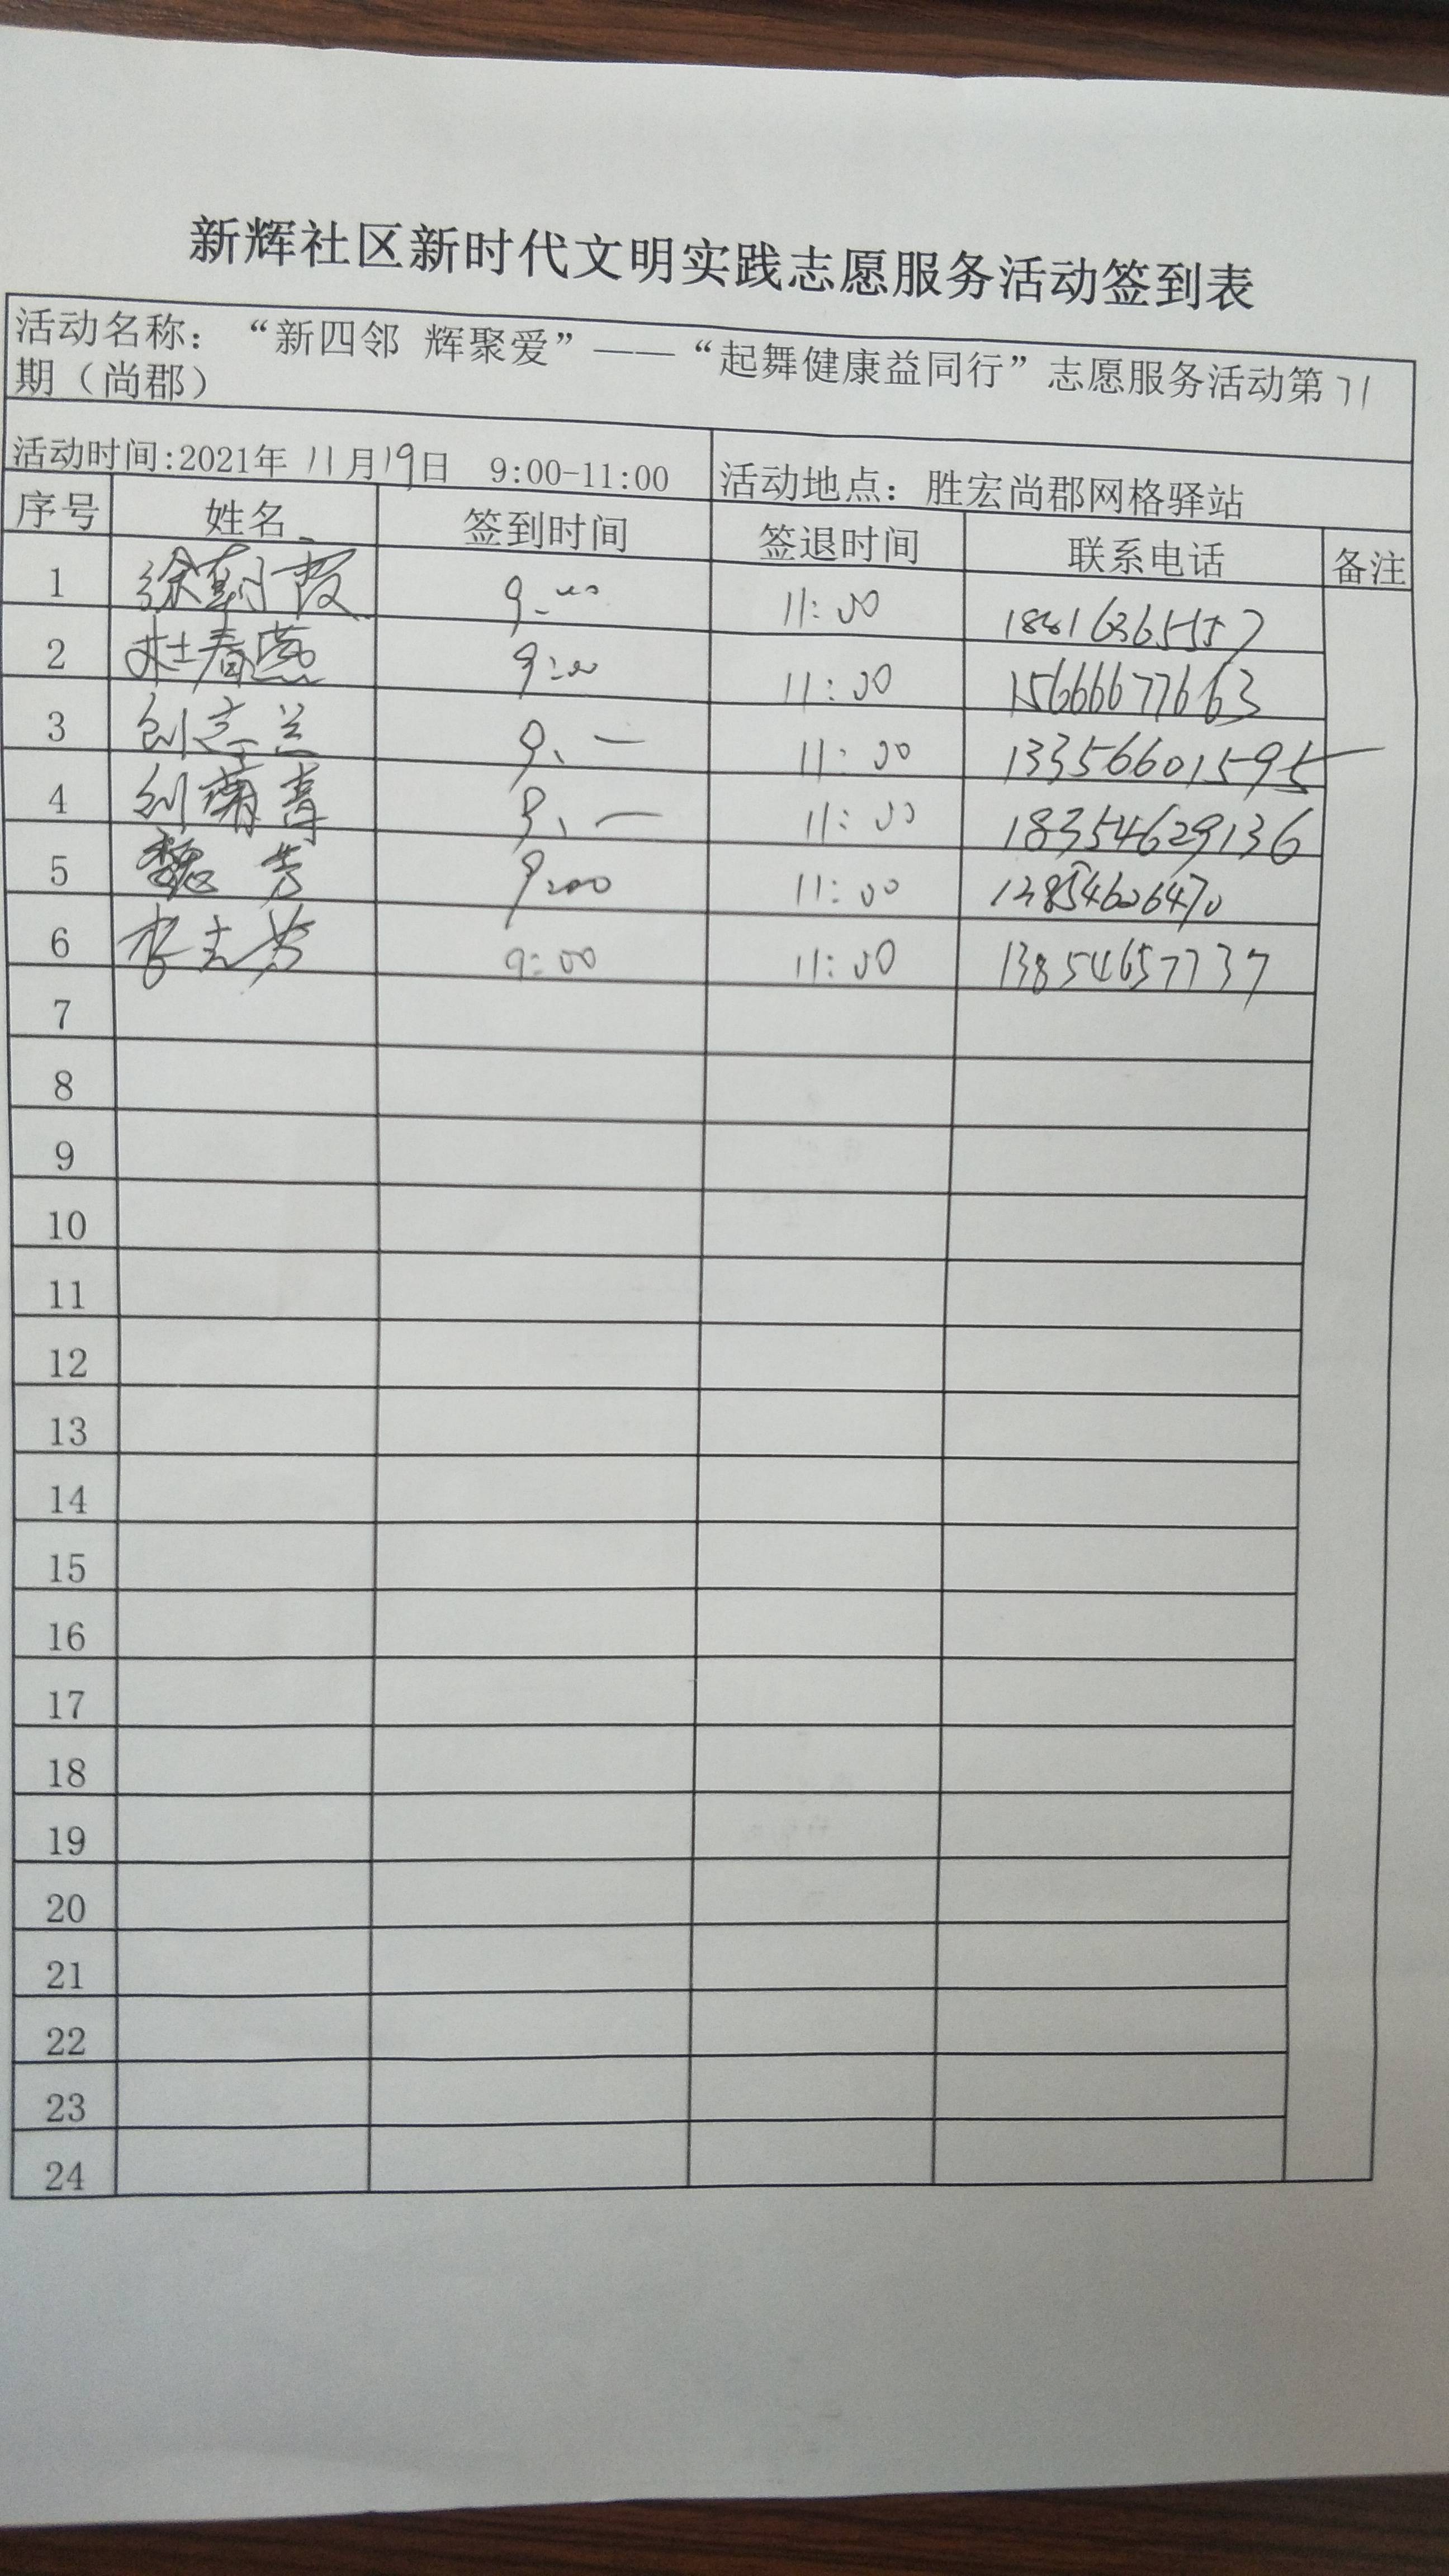 新辉社区新时代文明实践志愿服务活动签到表
活动名称：“新四邻 辉聚爱”——“起舞健康益同行”志愿服务活动第71
期（尚郡）
活动时间:2021年 11月19日 9:00-11:00 活动地点：胜宏尚郡网格驿站
序号 姓名 签到时间 签退时间 联系电话 备注
1 徐朝霞 9:00 11:00
2 杜春燕 9:00 11:00 15666677663
3 11:00 13356601595
4 11:00 18354629136
5 魏芳 9:00 11:00
6 李志芳 9:00 11:00 13854657737
7
8
9
10
11
12
13
14
15
16
17
18
19
20
21
22
23
24